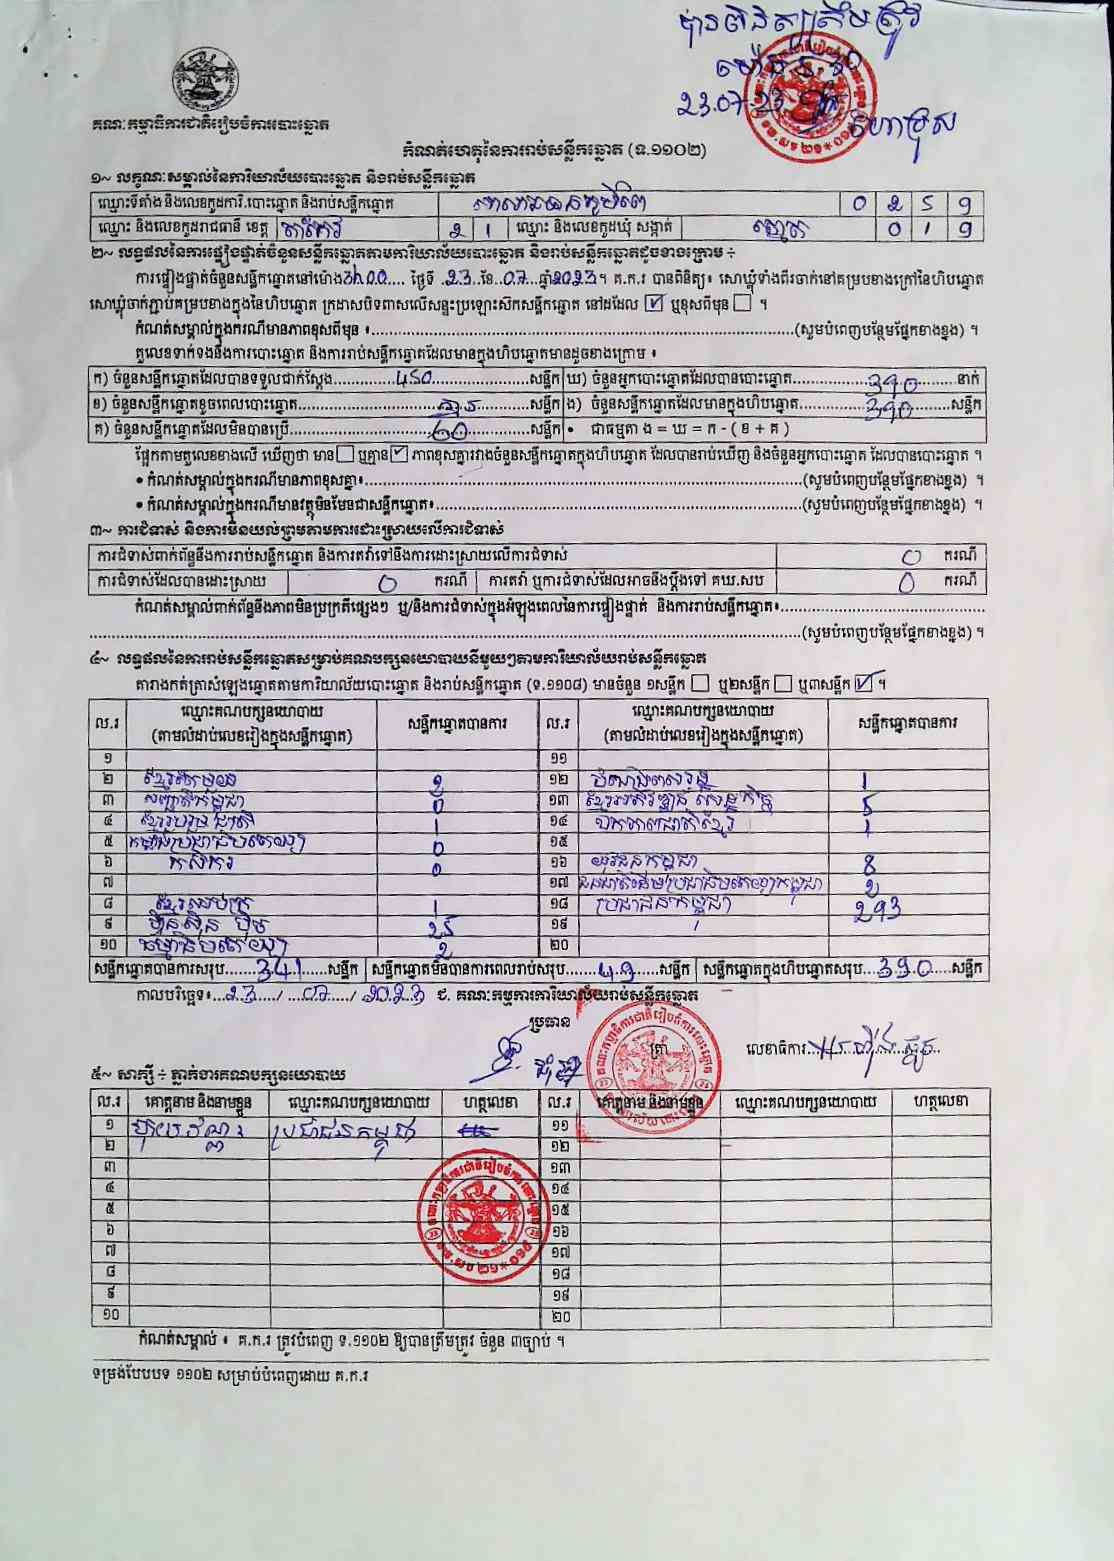 បានពិនិត្យត្រឹមត្រូវ
23.07.23
គណៈកម្មាធិការជាតិរៀបចំការបោះឆ្នោត
កំណត់ហេតុនៃការរាប់សន្លឹកឆ្នោត (ទ.១១០២)
១~ លក្ខណៈសម្គាល់នៃការិយាល័យបោះឆ្នោត និងរាប់សន្លឹកឆ្នោត
ឈ្មោះទីតាំង និងលេខកូដការិ.បោះឆ្នោត និងរាប់សន្លឹកឆ្នោត 0 2 5 9
ឈ្មោះ និងលេខកូដរាជធានី ខេត្ត តាកែវ 2 1 ឈ្មោះ និងលេខកូដឃុំ សង្កាត់ 0 1 9
២~ លទ្ធផលនៃការផ្ទៀងផ្ទាត់ចំនួនសន្លឹកឆ្នោតតាមការិយាល័យបោះឆ្នោត និងរាប់សន្លឹកឆ្នោតដូចខាងក្រោម ÷
ការផ្ទៀងផ្ទាត់ចំនួនសន្លឹកឆ្នោតនៅម៉ោង 3h00 ថ្ងៃទី 23 ខែ 07 ឆ្នាំ 2023 ។ គ.ក.រ បានពិនិត្យ៖ សោឃ្លុំទាំងពីរចាក់នៅគម្របខាងក្រៅនៃហិបឆ្នោត
សោឃ្លុំចាក់ភ្ជាប់គម្របខាងក្នុងនៃហិបឆ្នោត ក្រដាសបិទពាសលើសន្ទះប្រឡោះស៊កសន្លឹកឆ្នោត នៅដដែល ☑ ឬខុសពីមុន ☐ ។
កំណត់សម្គាល់ក្នុងករណីមានភាពខុសពីមុន ៖ (សូមបំពេញបន្ថែមផ្នែកខាងខ្នង) ។
តួលេខទាក់ទងនឹងការបោះឆ្នោត និងការរាប់សន្លឹកឆ្នោតដែលមានក្នុងហិបឆ្នោតមានដូចខាងក្រោម ៖
ក) ចំនួនសន្លឹកឆ្នោតដែលបានទទួលជាក់ស្តែង 450 សន្លឹក ឃ) ចំនួនអ្នកបោះឆ្នោតដែលបានបោះឆ្នោត 390 នាក់
ខ) ចំនួនសន្លឹកឆ្នោតខូចពេលបោះឆ្នោត គ្មាន សន្លឹក ង) ចំនួនសន្លឹកឆ្នោតដែលមានក្នុងហិបឆ្នោត 390 សន្លឹក
គ) ចំនួនសន្លឹកឆ្នោតដែលមិនបានប្រើ 60 សន្លឹក • ជាធម្មតា ង = ឃ = ក - ( ខ + គ )
ផ្អែកតាមតួលេខខាងលើ ឃើញថា មាន ☐ ឬគ្មាន ☑ ភាពខុសគ្នារវាងចំនួនសន្លឹកឆ្នោតក្នុងហិបឆ្នោត ដែលបានរាប់ឃើញ និងចំនួនអ្នកបោះឆ្នោត ដែលបានបោះឆ្នោត ។
• កំណត់សម្គាល់ក្នុងករណីមានភាពខុសគ្នា៖ (សូមបំពេញបន្ថែមផ្នែកខាងខ្នង) ។
• កំណត់សម្គាល់ក្នុងករណីមានវត្ថុមិនមែនជាសន្លឹកឆ្នោត៖ (សូមបំពេញបន្ថែមផ្នែកខាងខ្នង) ។
៣~ ការជំទាស់ និងការមិនយល់ព្រមតាមការដោះស្រាយលើការជំទាស់
ការជំទាស់ពាក់ព័ន្ធនឹងការរាប់សន្លឹកឆ្នោត និងការតវ៉ាទៅនឹងការដោះស្រាយលើការជំទាស់ 0 ករណី
ការជំទាស់ដែលបានដោះស្រាយ 0 ករណី ការតវ៉ា ឬការជំទាស់ដែលអាចនឹងប្តឹងទៅ គឃ.សប 0 ករណី
កំណត់សម្គាល់ពាក់ព័ន្ធនឹងភាពមិនប្រក្រតីផ្សេងៗ ឬ/និងការជំទាស់ក្នុងអំឡុងពេលនៃការផ្ទៀងផ្ទាត់ និងការរាប់សន្លឹកឆ្នោត៖
(សូមបំពេញបន្ថែមផ្នែកខាងខ្នង) ។
៤~ លទ្ធផលនៃការរាប់សន្លឹកឆ្នោតសម្រាប់គណបក្សនយោបាយនីមួយៗតាមការិយាល័យរាប់សន្លឹកឆ្នោត
តារាងកត់ត្រាសំឡេងឆ្នោតតាមការិយាល័យបោះឆ្នោត និងរាប់សន្លឹកឆ្នោត (ទ.១១០៨) មានចំនួន ១សន្លឹក ☐ ឬ២សន្លឹក ☐ ឬ៣សន្លឹក ☑ ។
ល.រ ឈ្មោះគណបក្សនយោបាយ (តាមលំដាប់លេខរៀងក្នុងសន្លឹកឆ្នោត) សន្លឹកឆ្នោតបានការ ល.រ ឈ្មោះគណបក្សនយោបាយ (តាមលំដាប់លេខរៀងក្នុងសន្លឹកឆ្នោត) សន្លឹកឆ្នោតបានការ
១ ១១
២ ខ្មែរតែមួយ 2 ១២ 1
៣ សញ្ជាតិកម្ពុជា 0 ១៣ ខ្មែរអភិវឌ្ឍន៍សេដ្ឋកិច្ច 5
៤ ខ្មែររួបរួមជាតិ 1 ១៤ ឯកភាពជាតិខ្មែរ 1
៥ កម្លាំងប្រជាធិបតេយ្យ 0 ១៥
៦ កសិករ 0 ១៦ យុវជនកម្ពុជា 8
៧ ១៧ ជនជាតិដើមប្រជាធិបតេយ្យកម្ពុជា 2
៨ ខ្មែរឈប់ក្រ 1 ១៨ ប្រជាជនកម្ពុជា 293
៩ ហ៊្វុនស៊ិនប៉ិច 25 ១៩
១០ ធម្មាធិបតេយ្យ 2 ២០
សន្លឹកឆ្នោតបានការសរុប 341 សន្លឹក សន្លឹកឆ្នោតមិនបានការពេលរាប់សរុប 49 សន្លឹក សន្លឹកឆ្នោតក្នុងហិបឆ្នោតសរុប 390 សន្លឹក
កាលបរិច្ឆេទ៖ 23 / 07 / 2023 ជ. គណៈកម្មការការិយាល័យរាប់សន្លឹកឆ្នោត
ប្រធាន ត្រា លេខាធិការ
៥~ សាក្សី ÷ ភ្នាក់ងារគណបក្សនយោបាយ
ល.រ គោត្តនាម និងនាមខ្លួន ឈ្មោះគណបក្សនយោបាយ ហត្ថលេខា ល.រ គោត្តនាម និងនាមខ្លួន ឈ្មោះគណបក្សនយោបាយ ហត្ថលេខា
១ ប្រជាជនកម្ពុជា ១១
២ ១២
៣ ១៣
៤ ១៤
៥ ១៥
៦ ១៦
៧ ១៧
៨ ១៨
៩ ១៩
១០ ២០
កំណត់សម្គាល់ ៖ គ.ក.រ ត្រូវបំពេញ ទ.១១០២ ឱ្យបានត្រឹមត្រូវ ចំនួន ៣ច្បាប់ ។
ទម្រង់បែបបទ ១១០២ សម្រាប់បំពេញដោយ គ.ក.រ